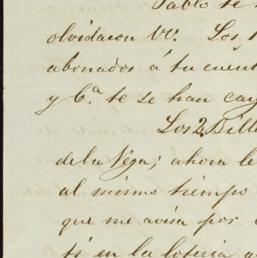 Pablo te
olvidaron VV. Los
abonados á tu cuent
y Cª. te se han cay
Los 2 Bille
de la Vega; ahora le
al mismo tiempo
que me avisa por
ti en la loteria